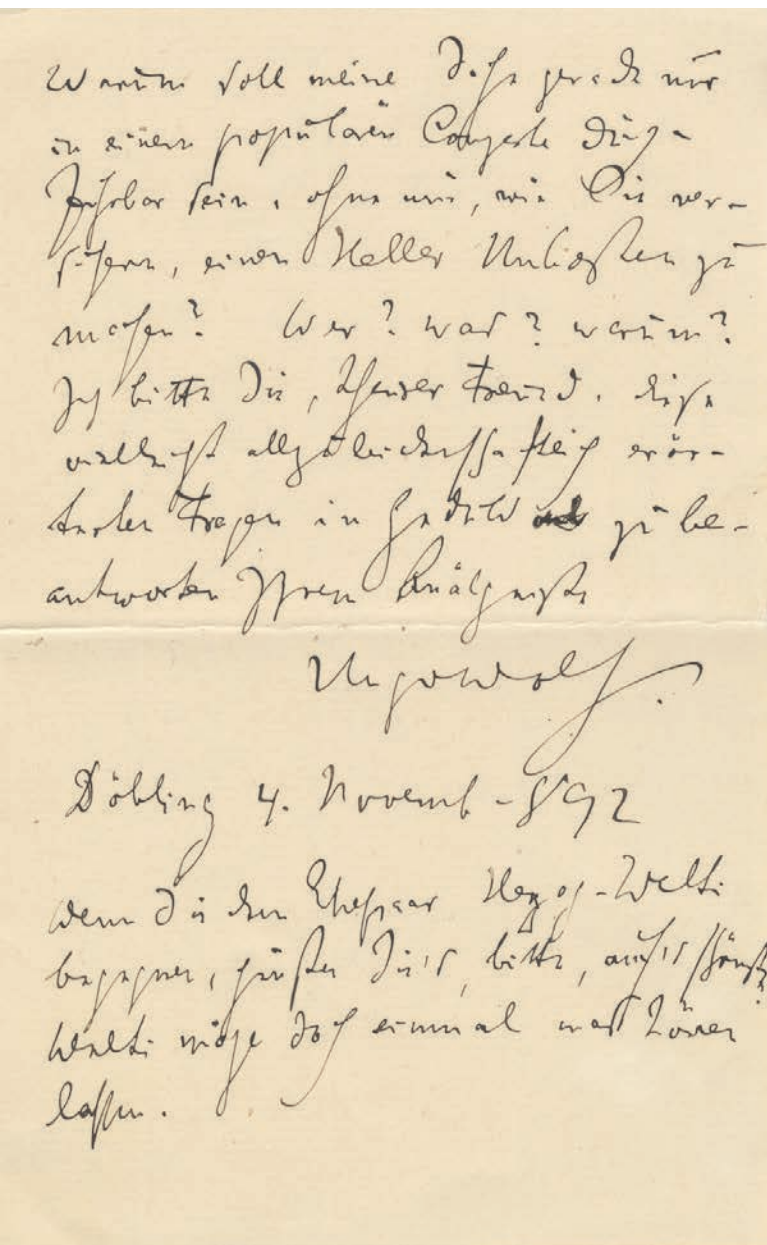 Warum soll meine Sache gerade nur
in einem populären Conzerte durch-
führbar sein, ohne mir, wie Sie ver-
sichern, einen Heller Unkosten zu
machen? Wer? was? warum?
Ich bitte Sie, theurer Freund, diese
vielleicht allzu leidenschaftlich erör-
terten Fragen in Geduld zu be-
antworten Ihrem
Hugo Wolf.
Döbling 4. Novemb 892
Wenn Sie dem Ehepaar Herzog-Welti
begegnen, grüßen Sie's, bitte, auf's schönste.
Welti möge doch einmal was hören
lassen.